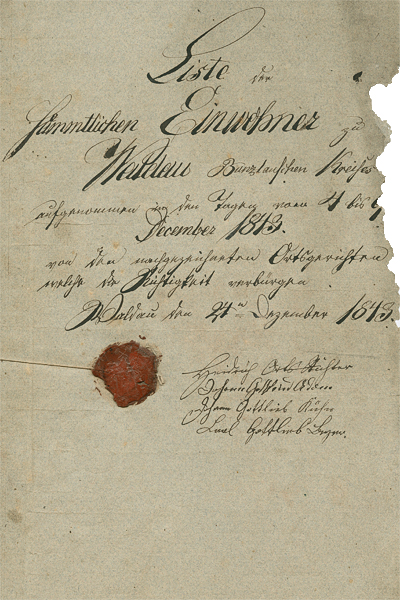 Liste der
sämmtlichen Einwohner zu
Waldau Bunzlauschen Kreises
aufgenommen in den Tagen vom 4 bis
December 1843.
von den nachgezeichneten Ortsgerichten
welche die Richtigkeit verbürgen.
Waldau den 24n Dezember 1843.
Heidrich Orts Richter
Johann Gottlieb Kuhn
Gottlieb